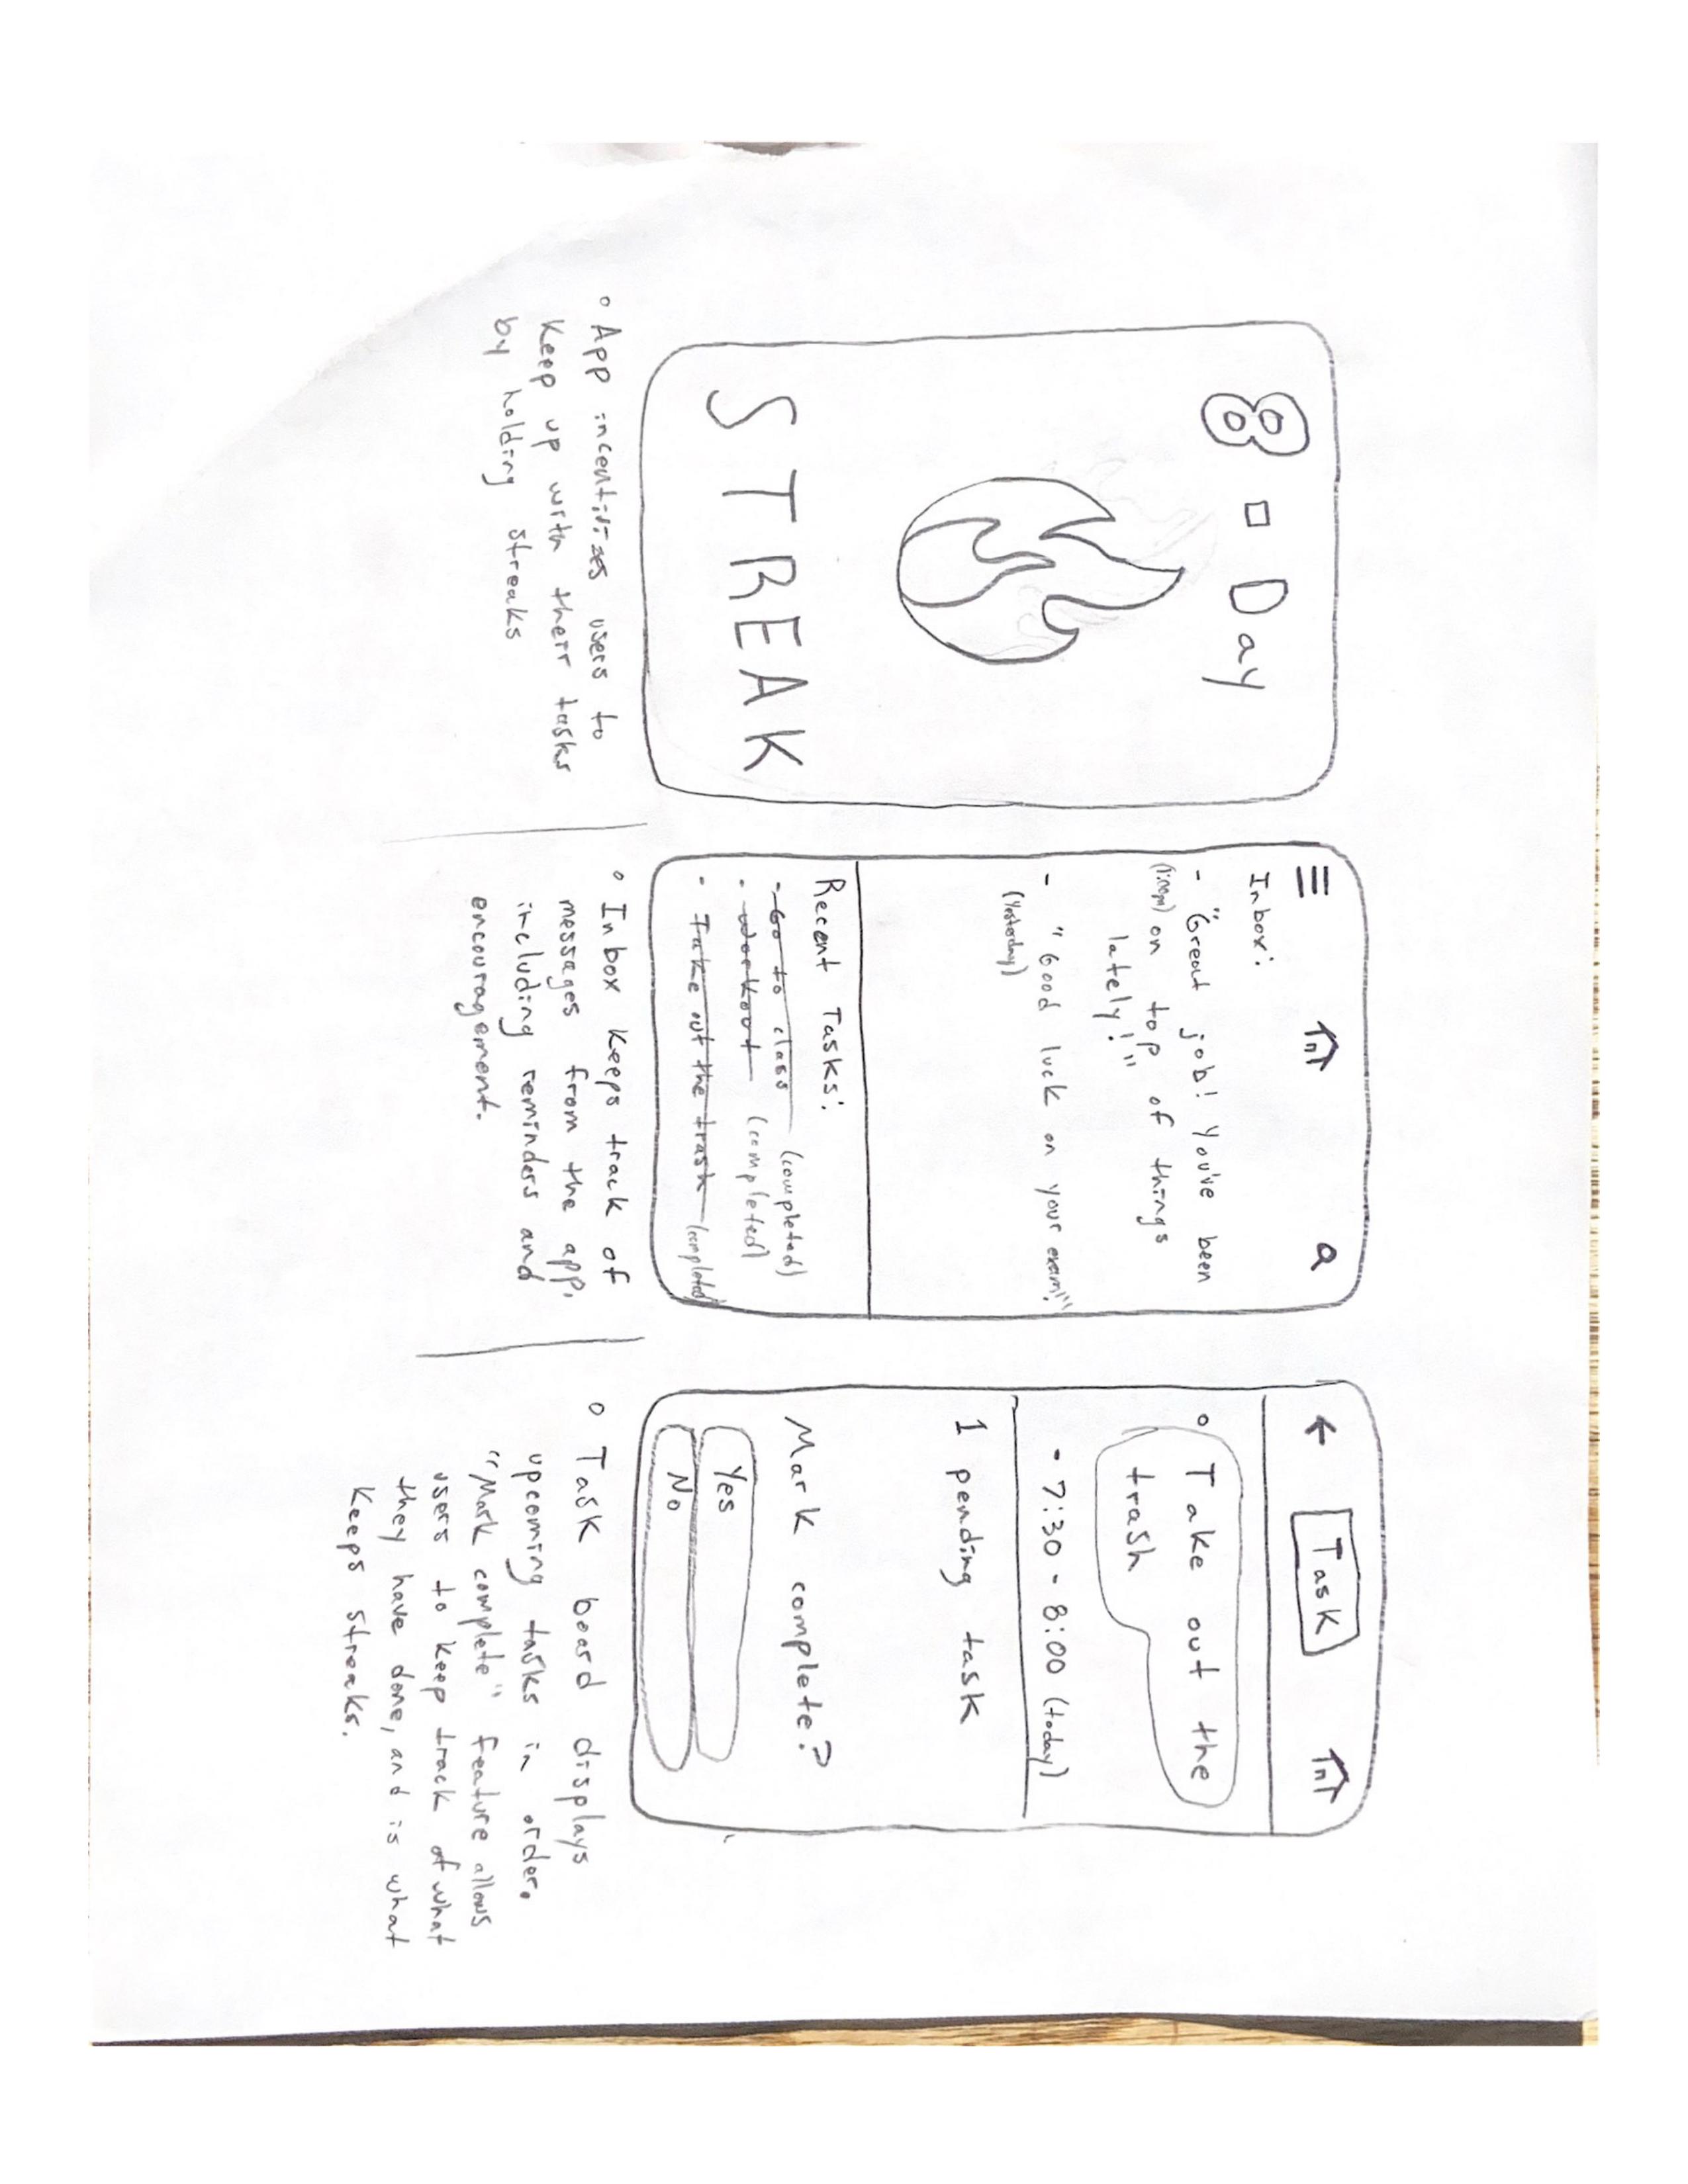 8 - Day
STREAK
◦ App incentivizes users to
keep up with their tasks
by holding streaks
Inbox:
- "Great job! You've been
on top of things
lately!"
- "Good luck on your exam!"
(Yesterday)
Recent Tasks:
- Go to class (completed)
- Workout (completed)
- Take out the trash (completed)
◦ Inbox keeps track of
messages from the app,
including reminders and
encouragement.
← Task
◦ Take out the
trash
- 7:30 - 8:00 (today)
1 pending task
Mark complete?
Yes
No
◦ Task board displays
upcoming tasks in order.
"Mark complete" feature allows
users to keep track of what
they have done, and is what
keeps streaks.